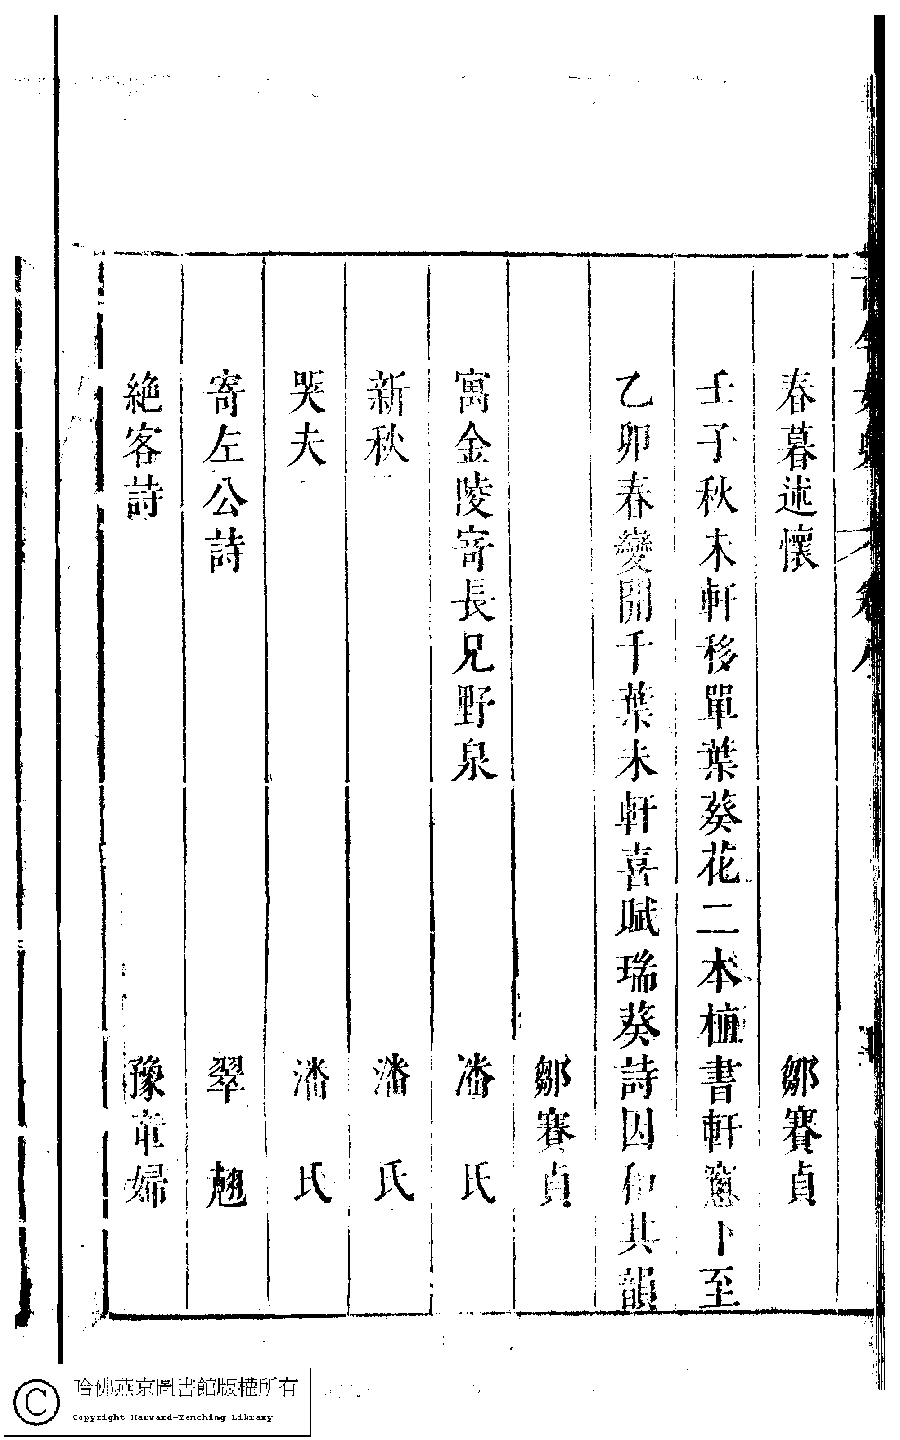 春暮述懷 鄒賽貞
壬子秋木軒移單葉葵花二本植書軒窻下至
乙卯春變開千葉未軒喜賦瑞葵詩因和其韻
鄒賽貞
寓金陵寄長兄野泉 潘氏
新秋 潘氏
哭夫 潘氏
寄左公詩 翠翹
絶客詩 豫章婦
哈佛燕京圖書館版權所有
Copyright Harvard-Yenching Library